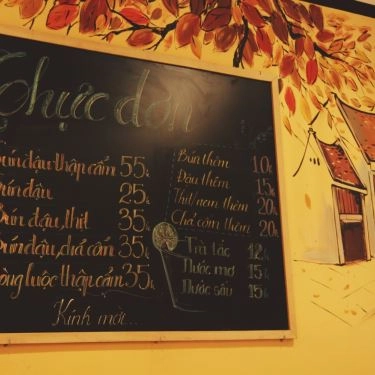 Thực đơn
Bún đậu thập cẩm 55k
Bún đậu 25k
Bún đậu, thịt 35k
Bún đậu, chả cốm 35k
Lòng luộc thập cẩm 35k
Kính mời...
Bún thêm 10k
Đậu thêm 15k
Thịt/nem thêm 20k
Chả cốm thêm 20k
Trà tắc 12k
Nước mơ 15k
Nước sấu 15k